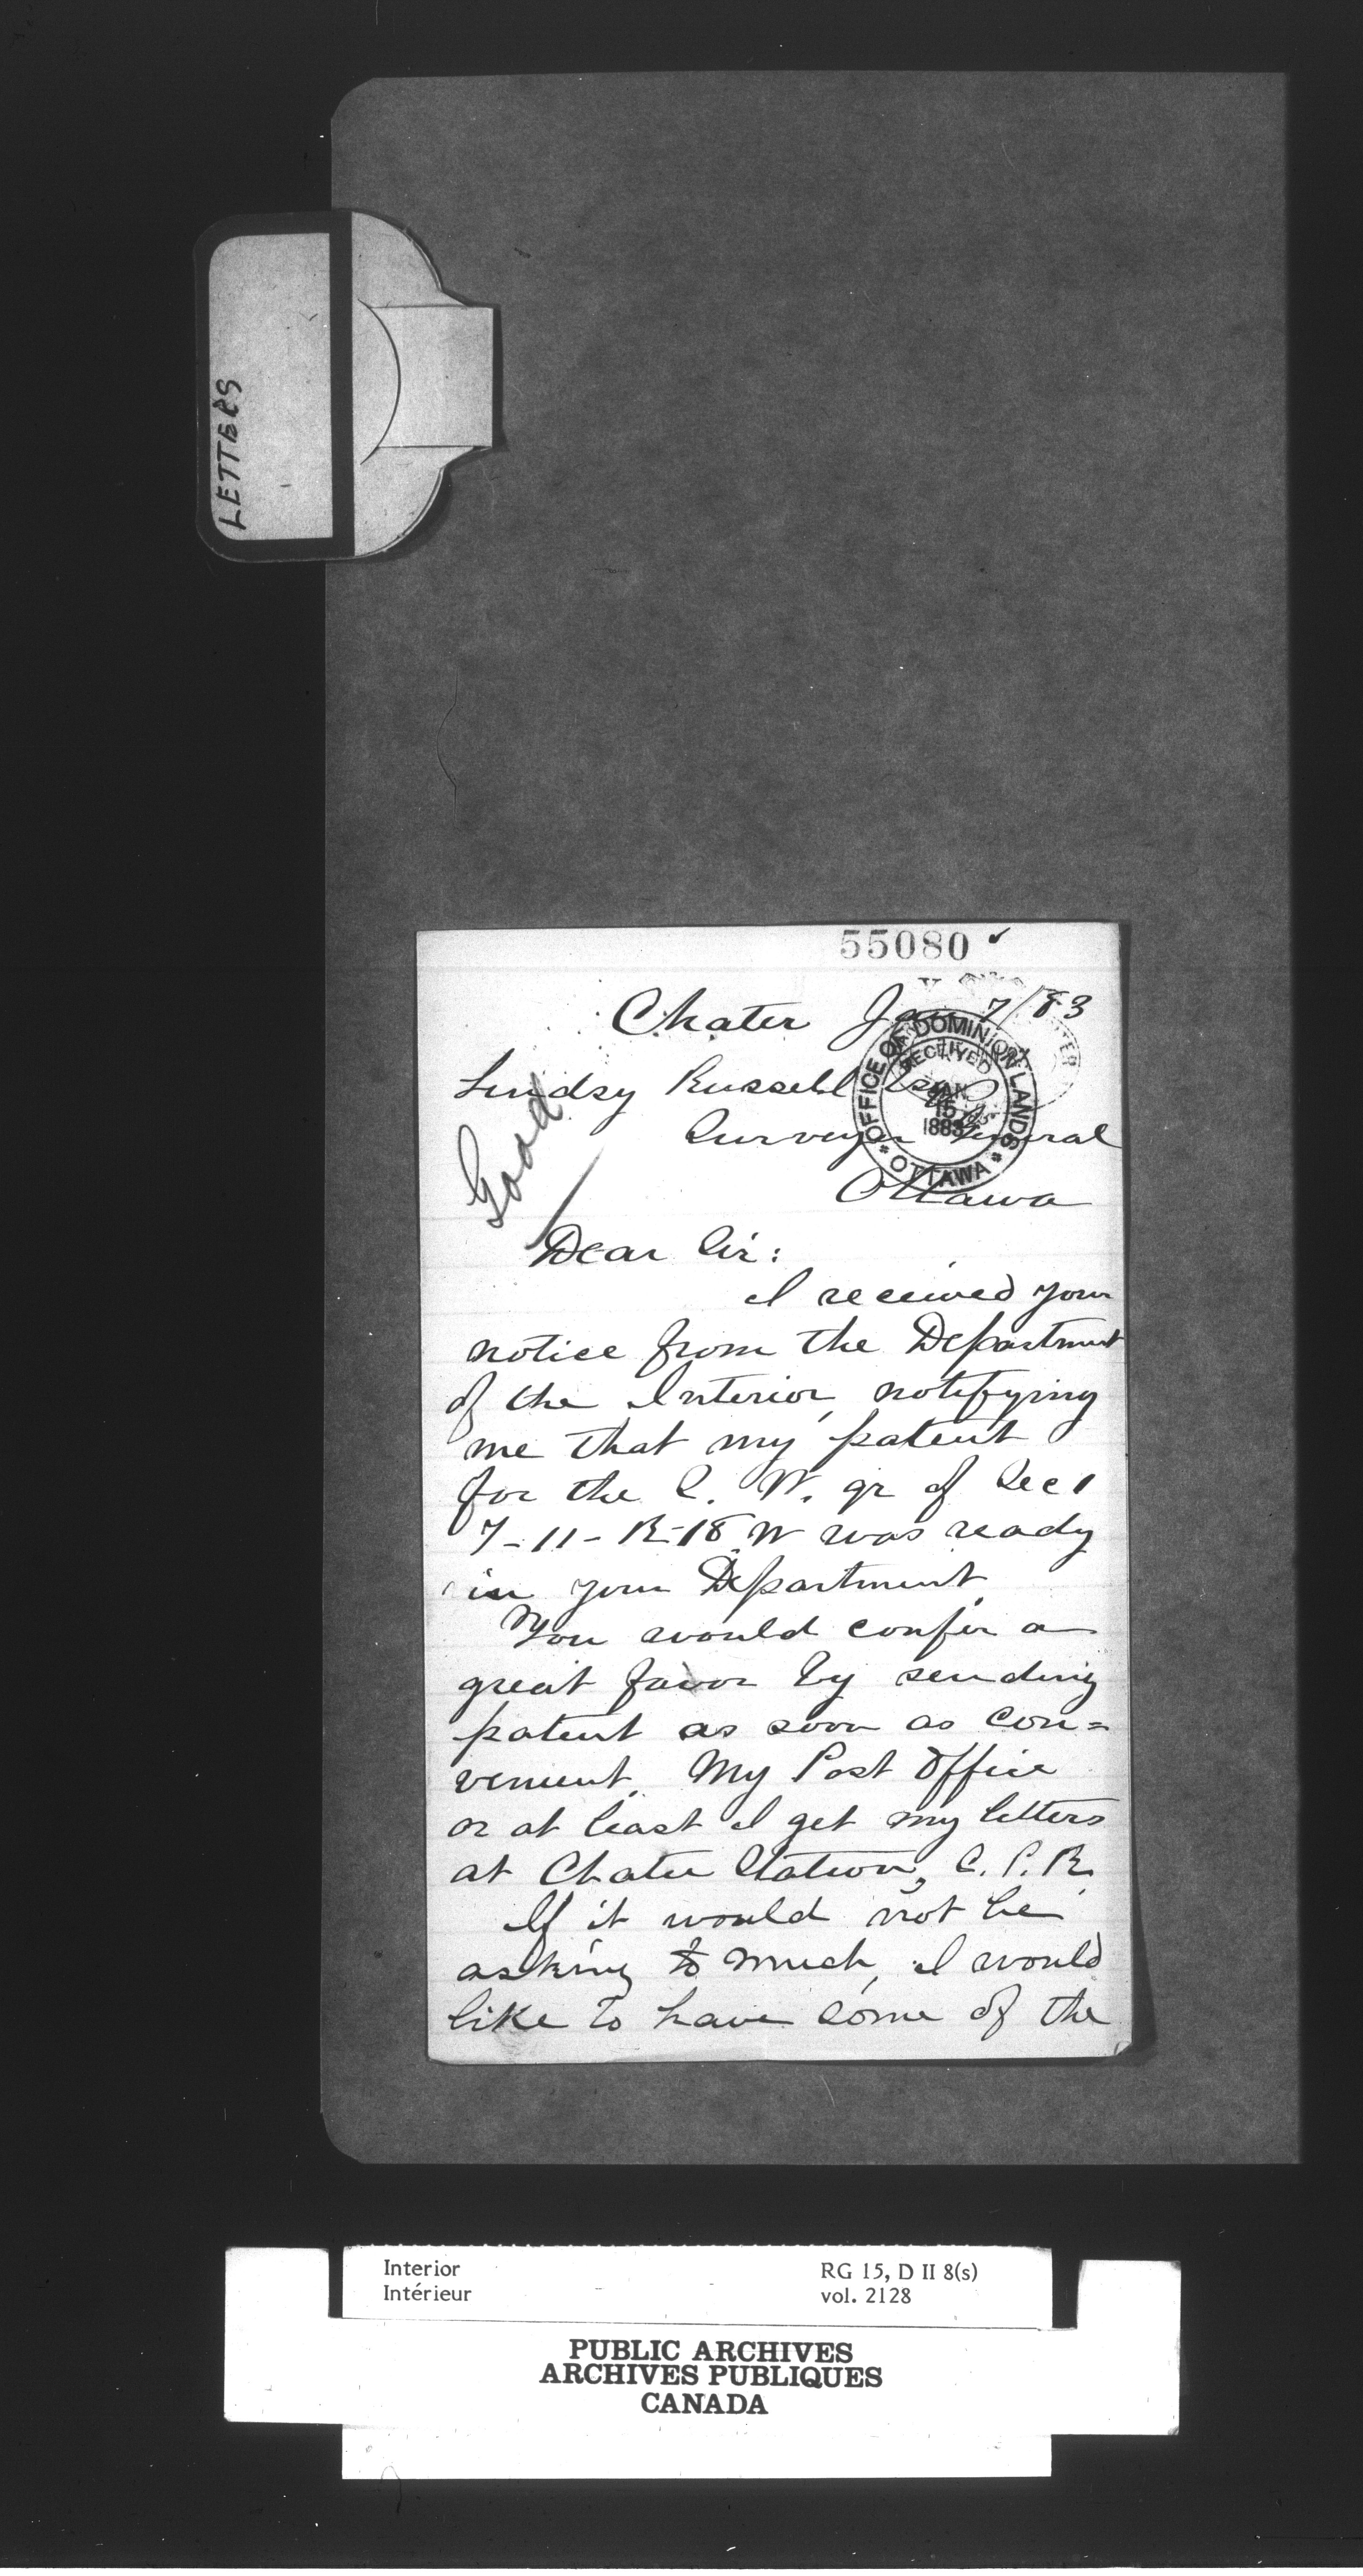 LETTERS
55080
Chater Jan 7/83
Lindsy Russell Esq
Surveyor General
Ottawa
OFFICE OF DOMINION LANDS
RECEIVED
JAN
15
1883
* OTTAWA *
Good
Dear Sir:
I received your
notice from the Department
of the Interior, notifying
me that my patent
for the S. W. qr of Sec 1
7-11-R-18 W was ready
in your Department.
You would confer a
great favor by sending
patent as soon as con=
venient. My Post Office
or at least I get my letters
at Chater Station, C. P. R.
If it would not be
asking to much, I would
like to have some of the
Interior
Intérieur
RG 15, D II 8(s)
vol. 2128
PUBLIC ARCHIVES
ARCHIVES PUBLIQUES
CANADA